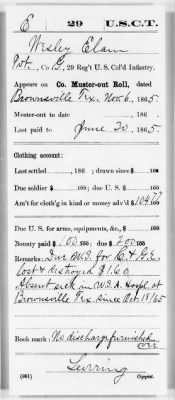 E 29 U.S.C.T.
Wesley Elam
Pvt., Co. G, 29 Reg't U.S. Col'd Infantry.
Appears on Co. Muster-out Roll, dated
Brownsville Tex. Nov. 6, 1865.
Muster-out to date , 186 .
Last paid to June 30, 1865.
Clothing account:
Last settled , 186 ; drawn since $ 100
Due soldier $ 100; due U.S. $ 100
Am't for cloth'g in kind or money adv'd $ 104 77/100
Due U.S. for arms, equipments, &c., $ 100
Bounty paid $ 100 100; due $ 200 100
Remarks: Due U.S. for C & G.E
lost & destroyed $1.60
Absent sick in U.S.A. Hospl. at
Brownsville Tex. since Oct. 18/65
Book mark: No discharge furnished
(861) Copyist.